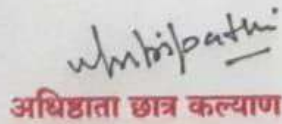 अधिष्ठाता छात्र कल्याण